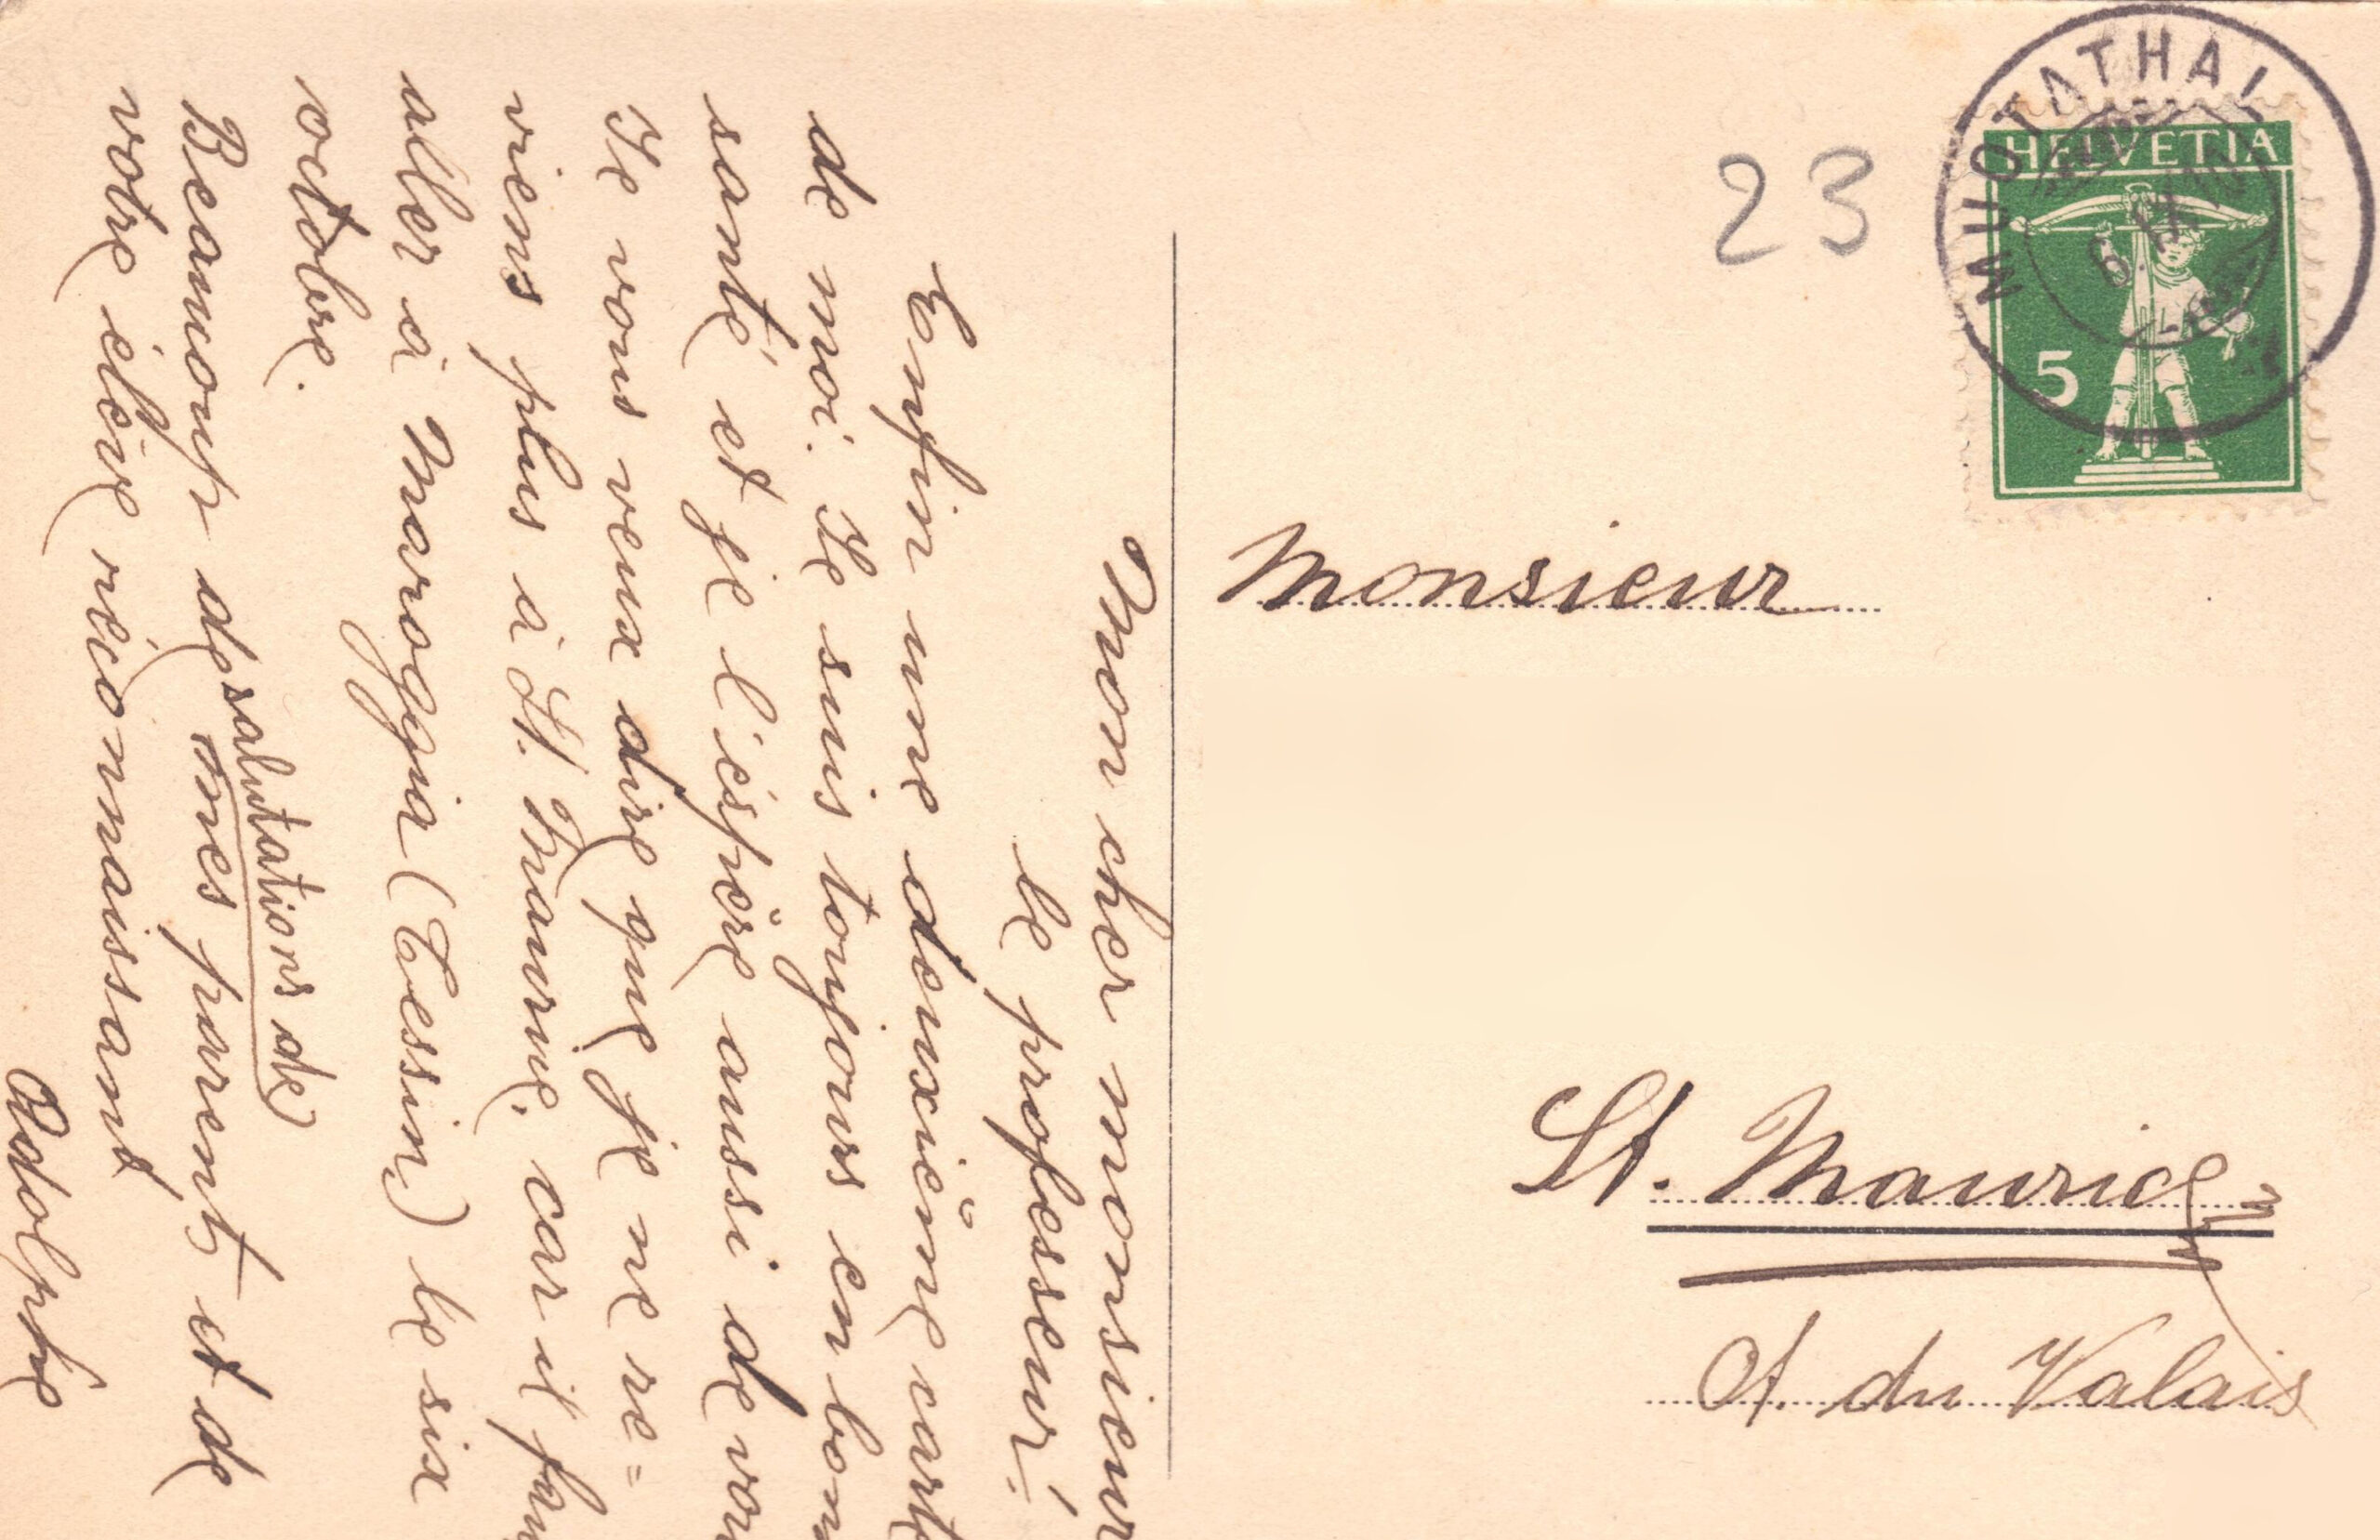 Mon cher monsieur
le professeur!
Enfin une deuxième cart
de moi. Je suis toujours en bon
santé et je l'éspère aussi de vou
Je vous veux dire que je ne re=
viens plus à St. Maurice, car il fau
aller à Maroggia (Tessin) le six
octobre.
salutations de
Beaucoup de mes parents et de
votre élève réconnaissant
Adolphe
23
MUOTATHAL
HELVETIA
5
Monsieur
St. Maurice
Ct. du Valais